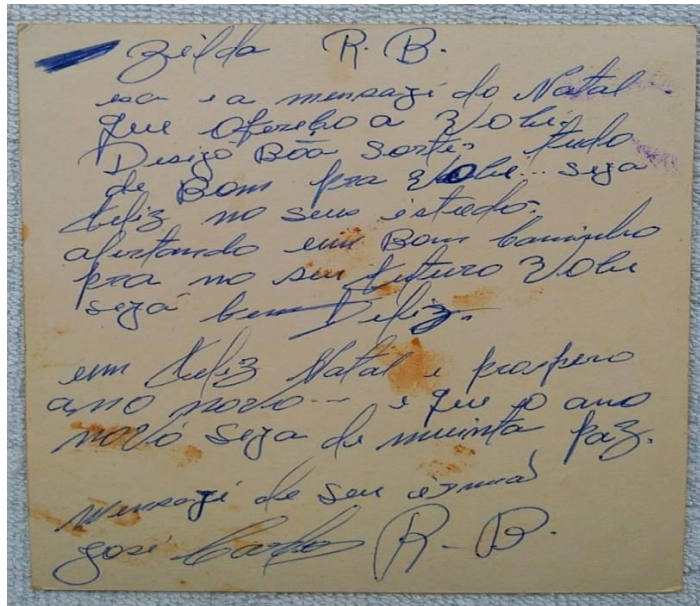 Zilda R. B.
esa e a mensagi do Natal
que Ofereço a Voçe.
Desejo Bôa Sorte. tudo
de Bom pra Voçe... seja
feliz no seus estudo.
afertando em Bom Caminho
pra no seu futuro Voçe
seja bem Feliz.
um feliz Natal e prospero
ano novo... e que o ano
novo seja de muinta paz.
mensagi de seu irmao
José Carlos R. B.